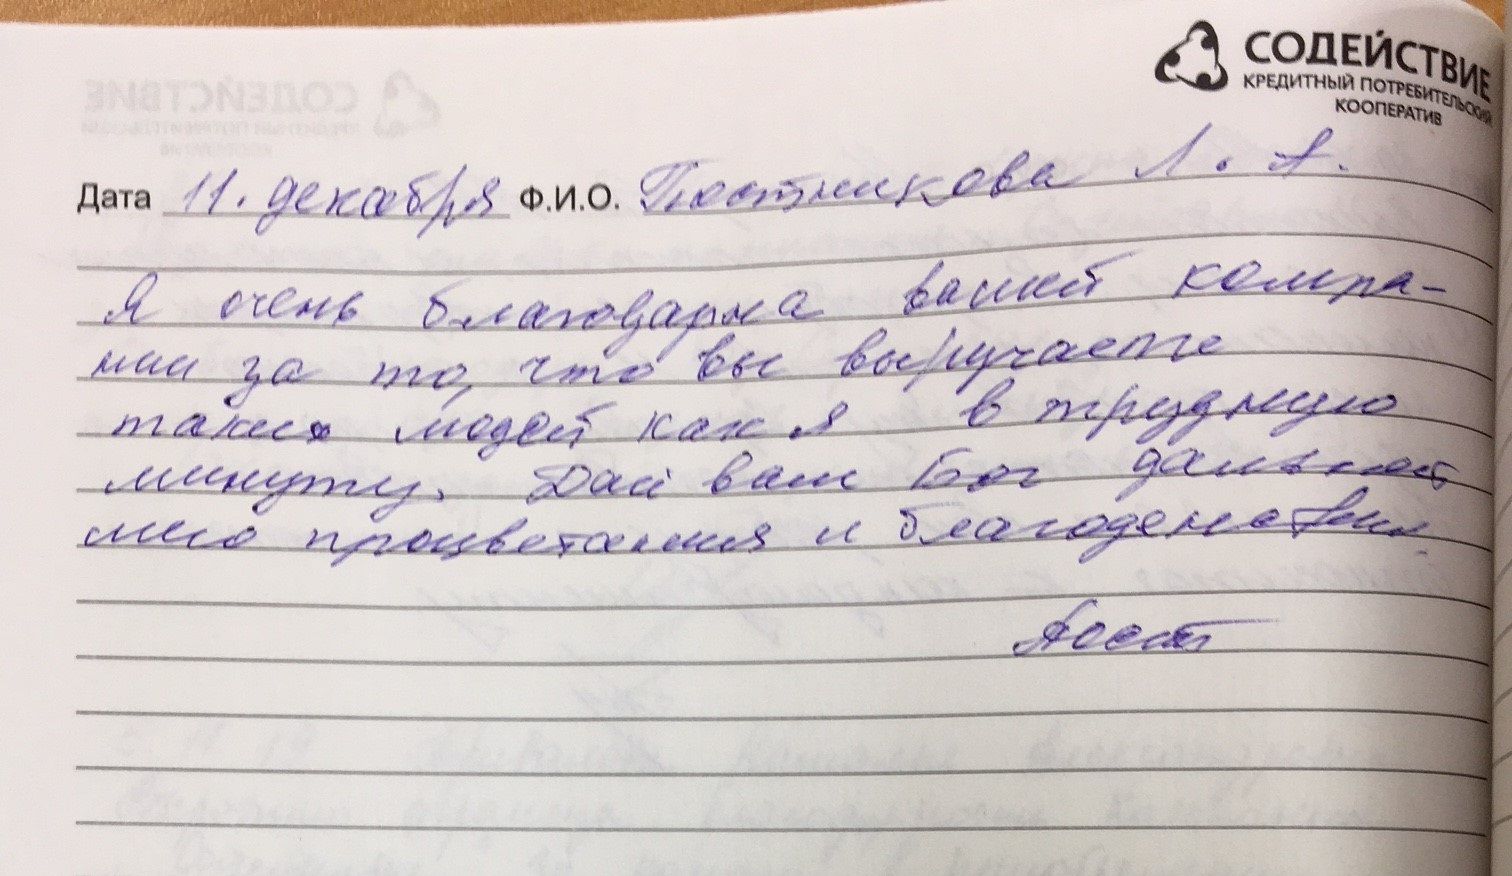 СОДЕЙСТВИЕ
КРЕДИТНЫЙ ПОТРЕБИТЕЛЬСКИЙ
КООПЕРАТИВ
Дата 11. декабря Ф.И.О. Постникова Л. А.
Я очень благодарна вашей компа-
нии за то, что вы выручаете
таких людей как я в трудную
минуту. Дай вам Бог дальней
шего процветания и благоденствия.